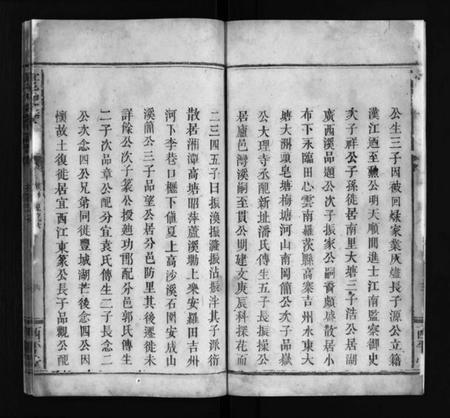 公生三子因被回燬家業灰燼長子源公立籍
漢江迺至勲公明天順間進士江南監察御史
次子祥公子孫徙居南里大塘三子浩公居湖
廣西溪品題公次子振家公嗣賚頗墟散居小
布下永臨田心雲南羅茨縣高寨吉州水東大
塘大洞頭皂塘梅塘河山南岡簡公次子品嶽
公大理寺丞配新址潘氏傳生五子長振操公
居廬邑灣溪嗣至貫公明建文庚辰科探花而
二三四五子曰振渙振瀚振沾振泮其子孫衍
散居湘潭高塘昭萍蘆溪墈上樂安羅田吉州
河下李巷口櫪下值夏上高沙溪石園安成山
溪簡公三子品望公居分邑防里其後遷徙未
詳餘公次子篆公授廸功郎配分邑郭氏傳生
二子次品章公配分宜袁氏傳生二子長念二
公次念四公兄弟同徙豐城湖茫後念四公因
懷故土復徙居宜西江東篆公長子品觀公配